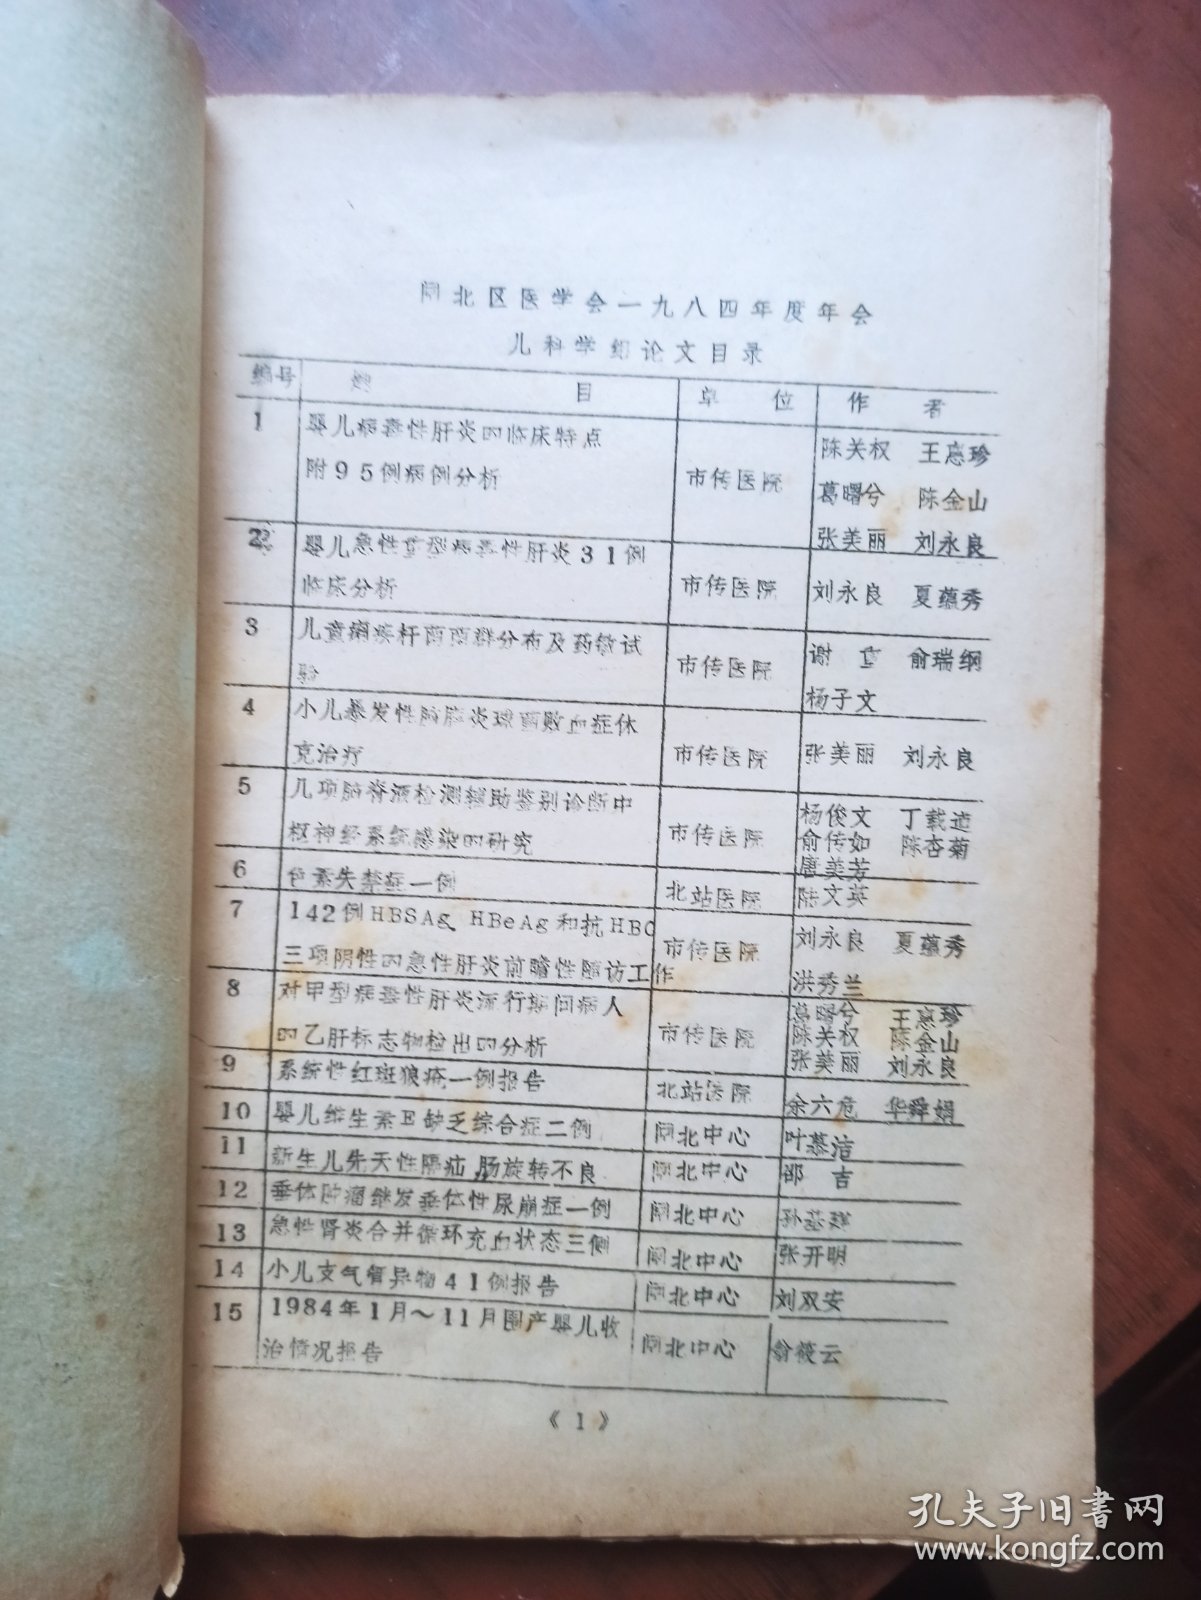 闸北区医学会一九八四年度年会
儿科学组论文目录
编号 题 目 单 位 作 者
1 婴儿病毒性肝炎的临床特点
附95例病例分析 市传医院 陈关权 王惠珍
葛曙兮 陈金山
张美丽 刘永良
2 婴儿急性重型病毒性肝炎31例
临床分析 市传医院 刘永良 夏蕴秀
3 儿童痢疾杆菌菌群分布及药敏试
验 市传医院 谢 俞瑞纲
杨子文
4 小儿暴发性脑膜炎球菌败血症休
克治疗 市传医院 张美丽 刘永良
5 几项脑脊液检测辅助鉴别诊断中
枢神经系统感染的研究 市传医院 杨俊文 丁载道
俞传如 陈杏菊
唐美芳
6 色素失禁症一例 北站医院 陆文英
7 142例HBSAg、HBeAg和抗HBC
三项阴性的急性肝炎前瞻性随访工作 市传医院 刘永良 夏蕴秀
洪秀兰
8 对甲型病毒性肝炎流行期间病人
的乙肝标志物检出的分析 市传医院 葛曙兮 王惠珍
陈关权 陈金山
张美丽 刘永良
9 系统性红斑狼疮一例报告 北站医院 余六危 华舜娟
10 婴儿维生素E缺乏综合症二例 闸北中心 叶慕洁
11 新生儿先天性膈疝,肠旋转不良 闸北中心 邵 吉
12 垂体肿瘤继发垂体性尿崩症一例 闸北中心 孙基
13 急性肾炎合并循环充血状态三例 闸北中心 张开明
14 小儿支气管异物41例报告 闸北中心 刘双安
15 1984年1月～11月围产婴儿收
治情况报告 闸北中心 翁筱云
《1》
孔夫子旧书网
www.kongfz.com